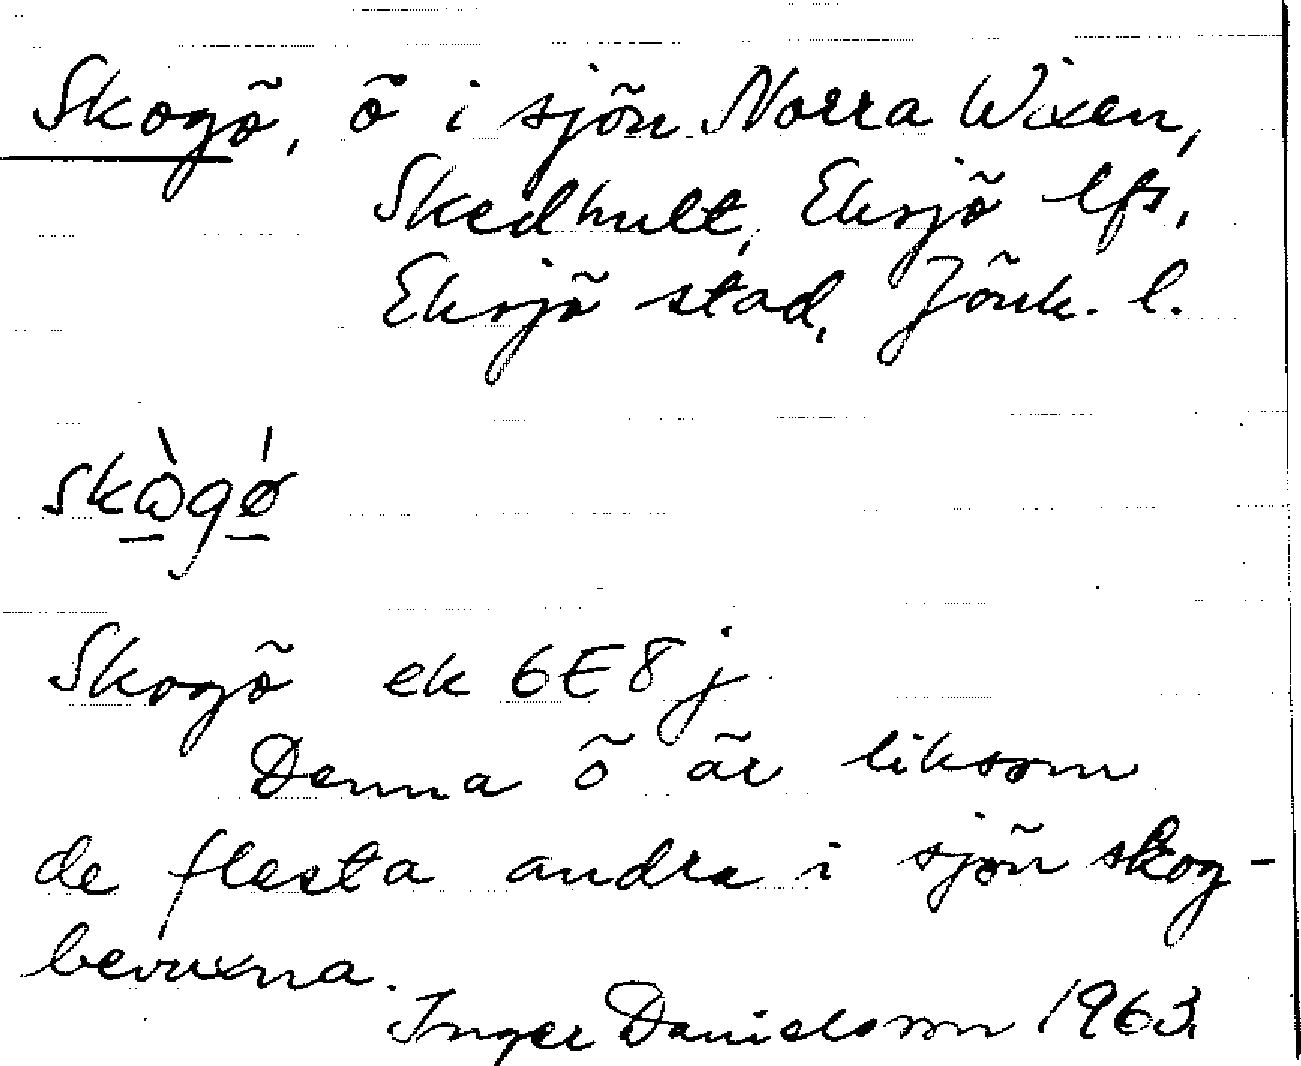 Skogö, ö i sjön Norra Wixen,
Skedhult, Eksjö lfs,
Eksjö stad, Jönk. l.
skὼgǿ
Skogö ek 6E8j
Denna ö är liksom
de flesta andra i sjön skog-
bevuxna.
Inger Danielsson 1963